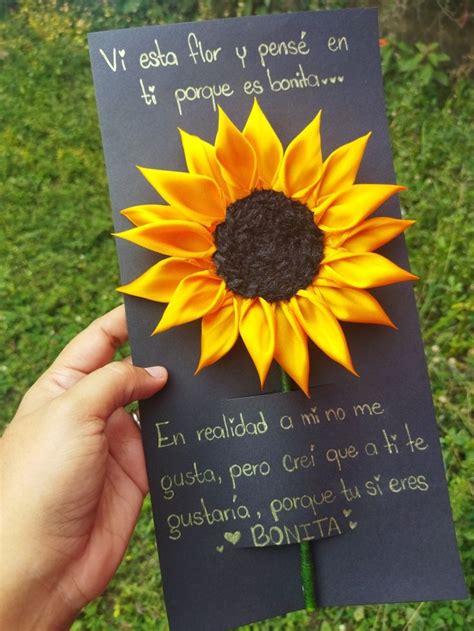 Vi esta flor y pensé en
ti porque es bonita...
En realidad a mi no me
gusta, pero creí que a ti te
gustaría, porque tu si eres
♡ BONITA ♡